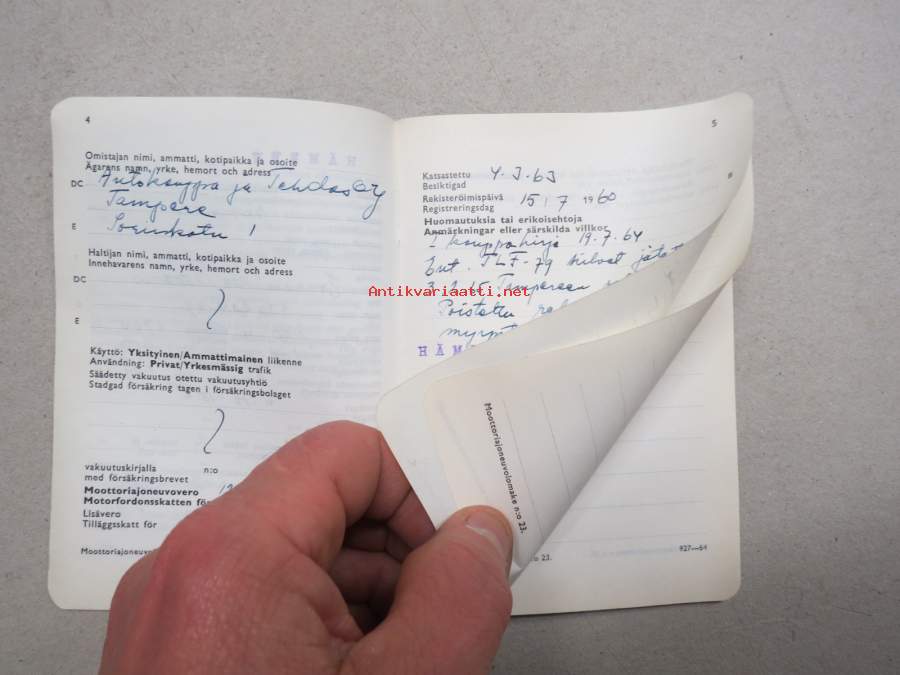 4
Omistajan nimi, ammatti, kotipaikka ja osoite
Ägarens namn, yrke, hemort och adress
DC Autokauppa ja Tehdas Oy
Tampere
E Sorinkatu 1
Haltijan nimi, ammatti, kotipaikka ja osoite
Innehavarens namn, yrke, hemort och adress
DC
E
Käyttö: Yksityinen/Ammattimainen liikenne
Användning: Privat/Yrkesmässig trafik
Säädetty vakuutus otettu vakuutusyhtiö
Stadgad försäkring tagen i försäkringsbolaget
vakuutuskirjalla n:o
med försäkringsbrevet
Moottoriajoneuvovero
Motorfordonsskatten för
Lisävero
Tilläggsskatt för
5
Katsastettu
Besiktigad
Rekisteröimispäivä 15/7 1960
Registreringsdag
Huomautuksia tai erikoisehtoja
Anmärkningar eller särskilda villkor
I kauppakirja 19.7.64
Ent. TLF-79 kilvet
Tampereen
Poistettu
HÄM
Moottoriajoneuvolomake n:o 23.
o 23.
927—64
Antikvariaatti.net